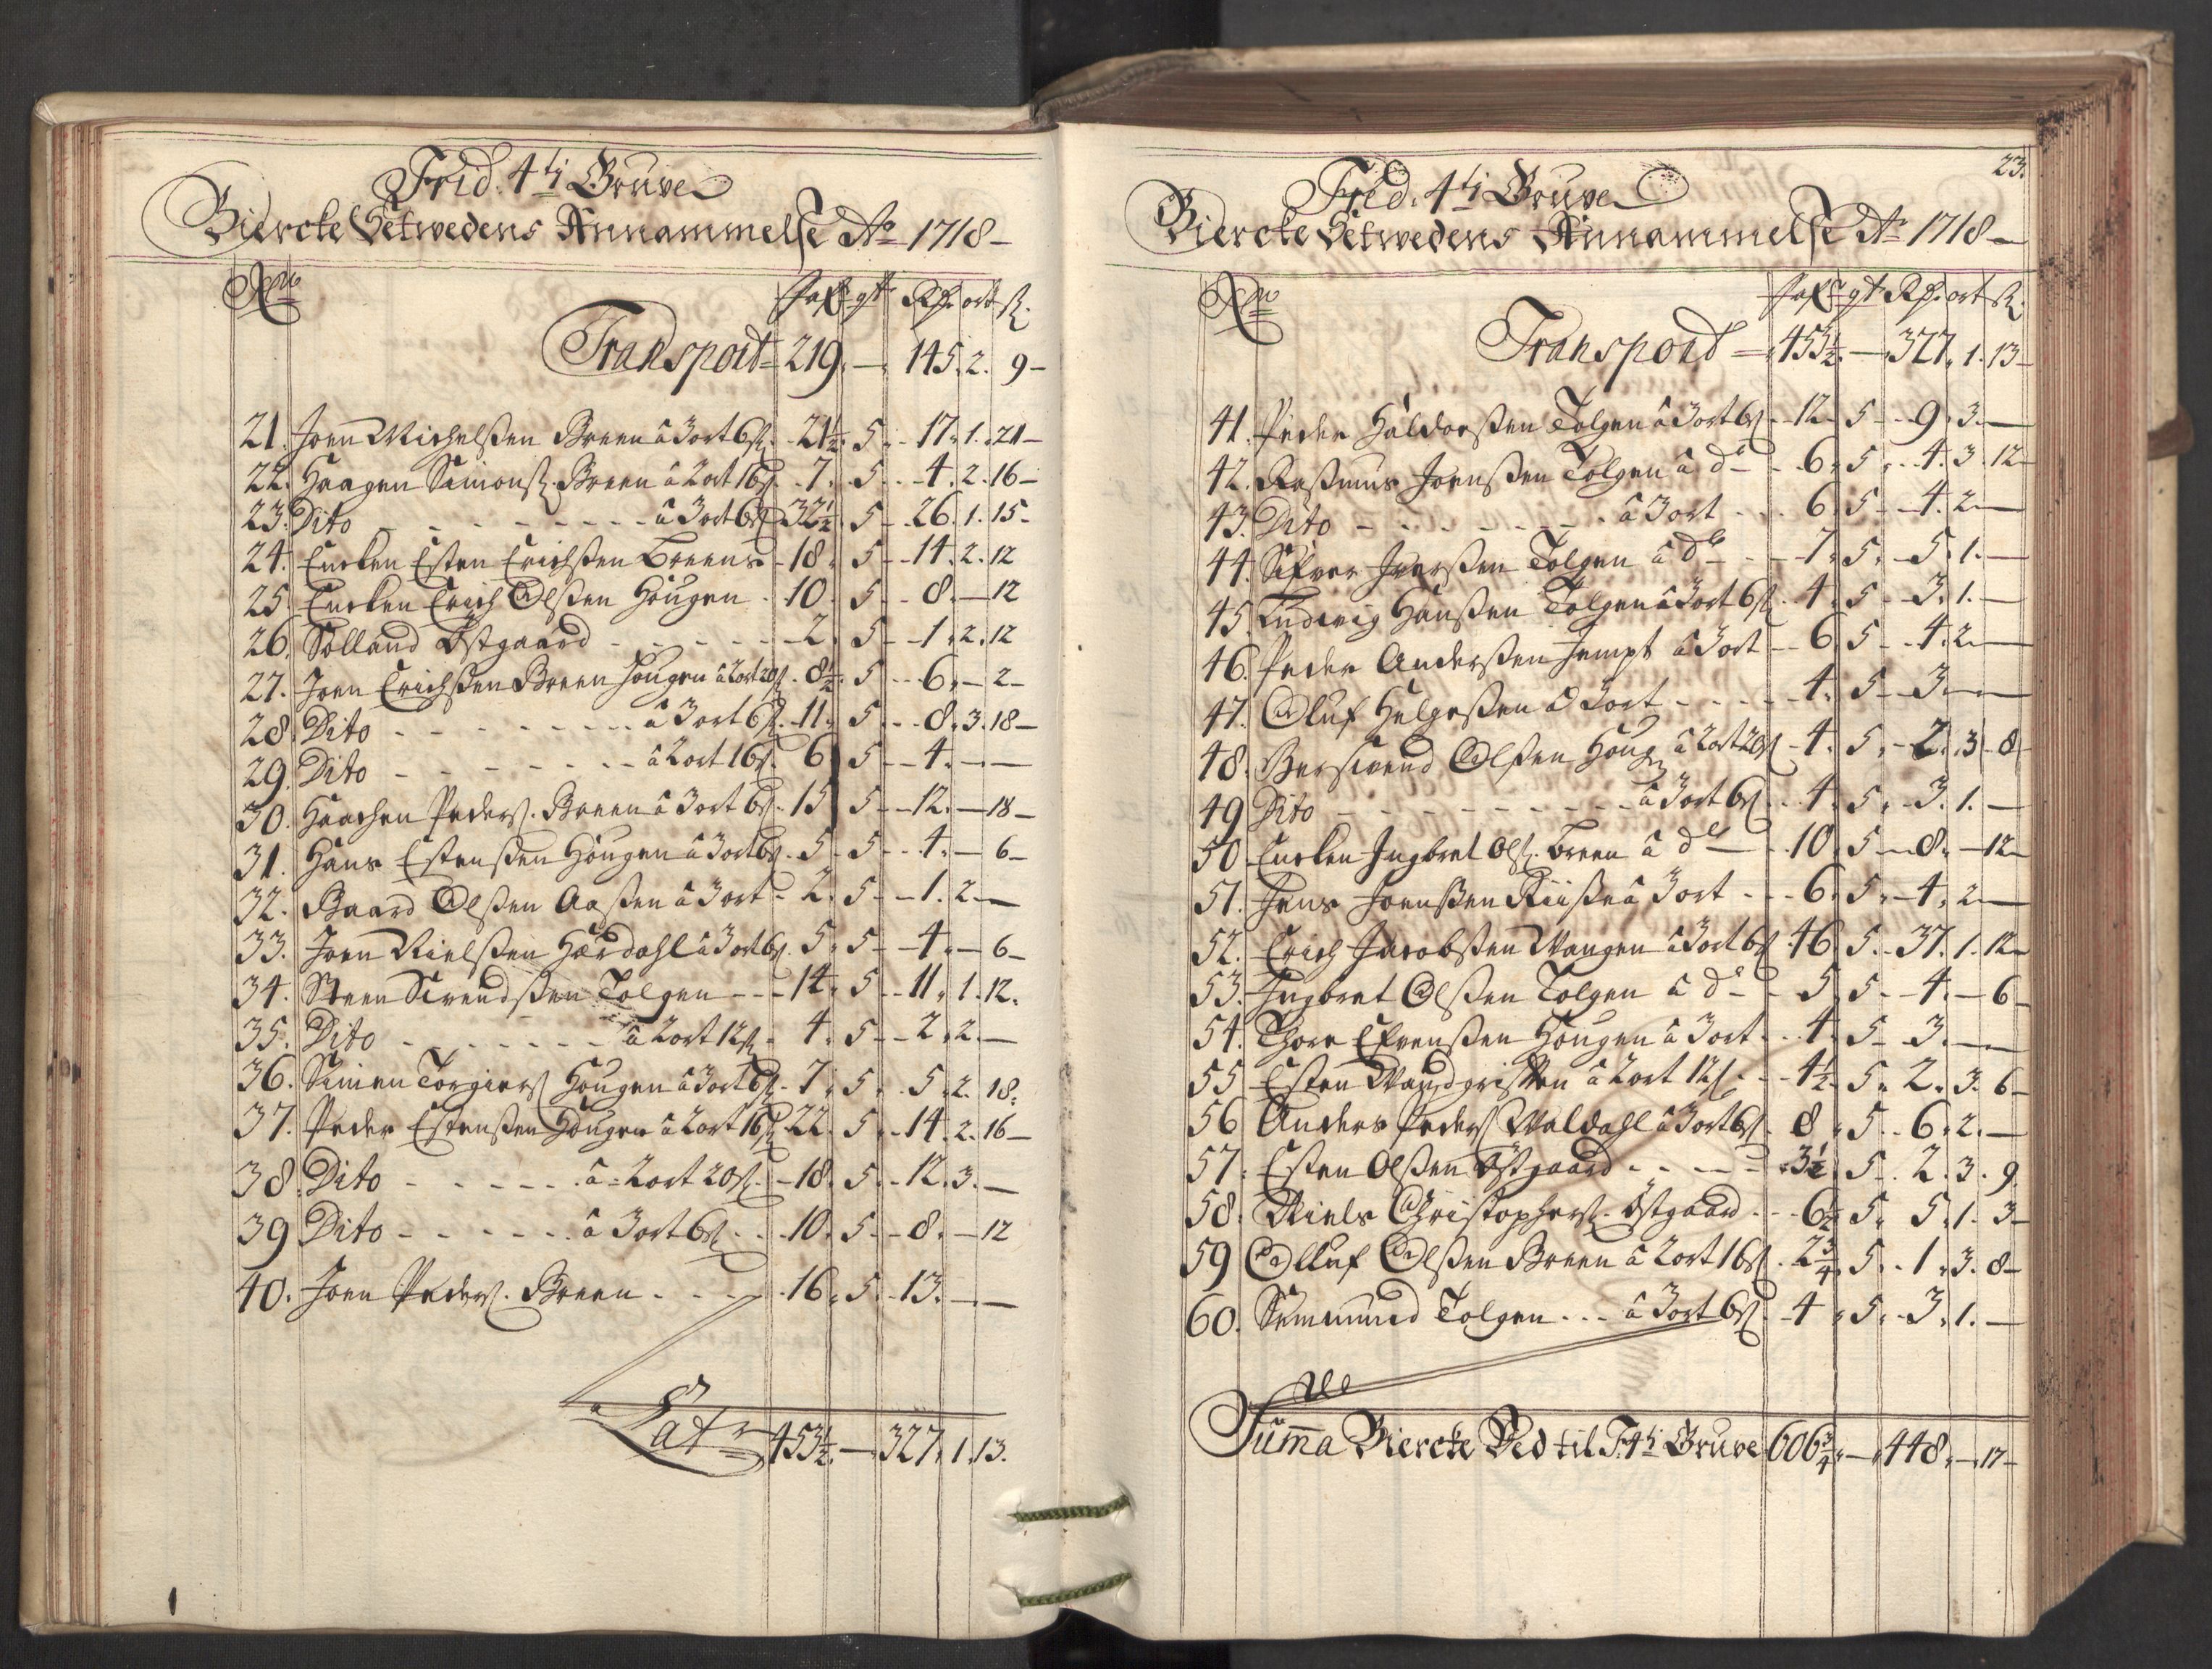 Frid. 4ti Gruve
Biercke Setwedens Annammelße Ao 1718
No fafn gt Rdr ort sk.
Transport 219. — 145. 2. 9
21. Joen Michelßen Breen â 3 ort 6 s. 21½. 5. 17. 1. 21
22. Haagen Simonß. Breen â 2 ort 16 s. 7. 5. 4. 2. 16
23. Dito â 3 ort 6 s. 32½. 5. 26. 1. 15
24. Encken Esten Erichßen Breens 18. 5. 14. 2. 12
25. Encken Erich Olßen Hougen 10. 5. 8. — 12
26. Solland Östgaard 2. 5. 1. 2. 12
27. Joen Erichßen Breen Hougen â 2 ort 20 s. 8½. 5. 6. — 2
28. Dito â 3 ort 6 s. 11. 5. 8. 3. 18
29. Dito â 2 ort 16 s. 6 5 4. — —
30. Haachen Peders. Breen â 3 ort 6 s. 15 5 12. — 18
31. Hans Estenßen Hougen â 3 ort 6 s. 5. 5. 4. — 6
32. Baard Olßen Aaßen â 3 ort 2. 5. 1. 2. —
33. Joen Nielßen Hærdahl â 3 ort 6 s. 5. 5. 4. — 6
34. Steen Sivendßen Tolgen 14. 5. 11. 1. 12.
35. Dito â 2 ort 12 s. 4. 5. 2. 2. —
36. Simen Torgiers Hougen â 3 ort 6 s. 7. 5. 5. 2. 18.
37. Peder Estenßen Hougen â 2 ort 16 s. 22. 5. 14. 2. 16
38. Dito â 2 ort 20 s. 18. 5. 12. 3. —
39 Dito â 3 ort 6 s. 10. 5. 8. — 12
40. Joen Peders. Breen 16. 5. 13. — —
Latr 453½. — 327. 1. 13.
23.
Frid. 4ti Gruve
Biercke Setwedens Annammelße Ao 1718
No fafn gt Rdr ort sk.
Transport 453½. — 327. 1. 13
41. Peder Haldorßen Tolgen â 3 ort 6 s. 12. 5 9. 3. —
42. Rasmus Joenßen Tolgen â do 6. 5. 4. 3. 12
43. Dito â 3 ort 6 5 4. 2 —
44. Sifver Iverßen Tolgen â do 7. 5. 5. 1. —
45. Ludevig Hanßen Tolgen â 3 ort 6 s. 4. 5 3. 1. —
46. Peder Anderßen Jempt â 3 ort 6. 5 4. 2 —
47. Oluf Helgeßen â 3 ort 4. 5 3. —
48. Bersvend Olßen Houg â 2 ort 20 s 4. 5. 2. 3 8
49 Dito â 3 ort 6 s. 4. 5. 3. 1. —
50 Encken Ingbret Ols. Breen â do 10. 5 8. — 12
51. Jens Joenßen Riiße â 3 ort 6. 5. 4. 2 —
52. Erich Jacobßen Vangen â 3 ort 6 s 46 5. 37. 1. 12
53. Ingbret Olßen Tolgen â do 5. 5. 4. — 6
54. Thore Efvenßen Hougen â 3 ort 4. 5 3. — —
55 Esten Vandgriften â 2 ort 12 s. 4½. 5. 2. 3. 6
56 Anders Peders Valdahl â 3 ort 6 s. 8. 5. 6. 2. —
57. Esten Olßen Östgaard 3½ 5. 2. 3. 9.
58. Niels Christophers. Östgaard 6½ 5. 5. 1. 3
59 Olluf Olßen Breen â 2 ort 16 s. 2¾. 5. 1. 3. 8
60. Semmund Tolgen â 3 ort 6 s. 4. 5. 3. 1. —
Summa Biercke Ved til F. 4ti Gruve 606¾. — 448. — 17